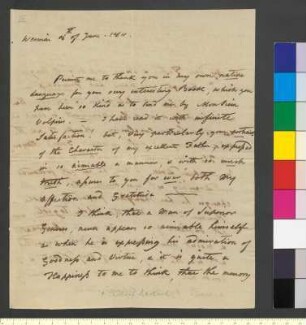 of June
Permit me to thank you in my own native
language for your very interesting Book, which you
have been so kind as to send me by
I have read it with infinite
satisfaction, but very particularly your portrait
of the Character of my excellent Father, expressed
in so amiable a manner, & with so much
truth, assures to you for ever both my
affection and Gratitude
I think that a Man of Superior
Genius, never appears so amiable himself
as when he is expressing his admiration of
Goodness and Virtue, & it is quite a
Happiness to me to think, that the memory